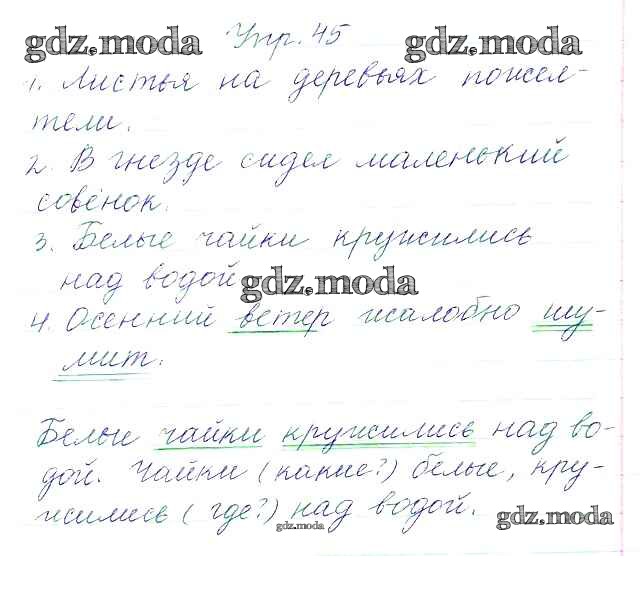 gdz.moda Упр. 45 gdz.moda
1. Листья на деревьях пожел-
тели.
2. В гнезде сидел маленький
совёнок.
3. Белые чайки кружились
над водой gdz.moda
4. Осенний ветер жалобно шу-
мит.
Белые чайки кружились над во-
дой. Чайки (какие?) белые, кру-
жились (где?) над водой.
gdz.moda
gdz.moda